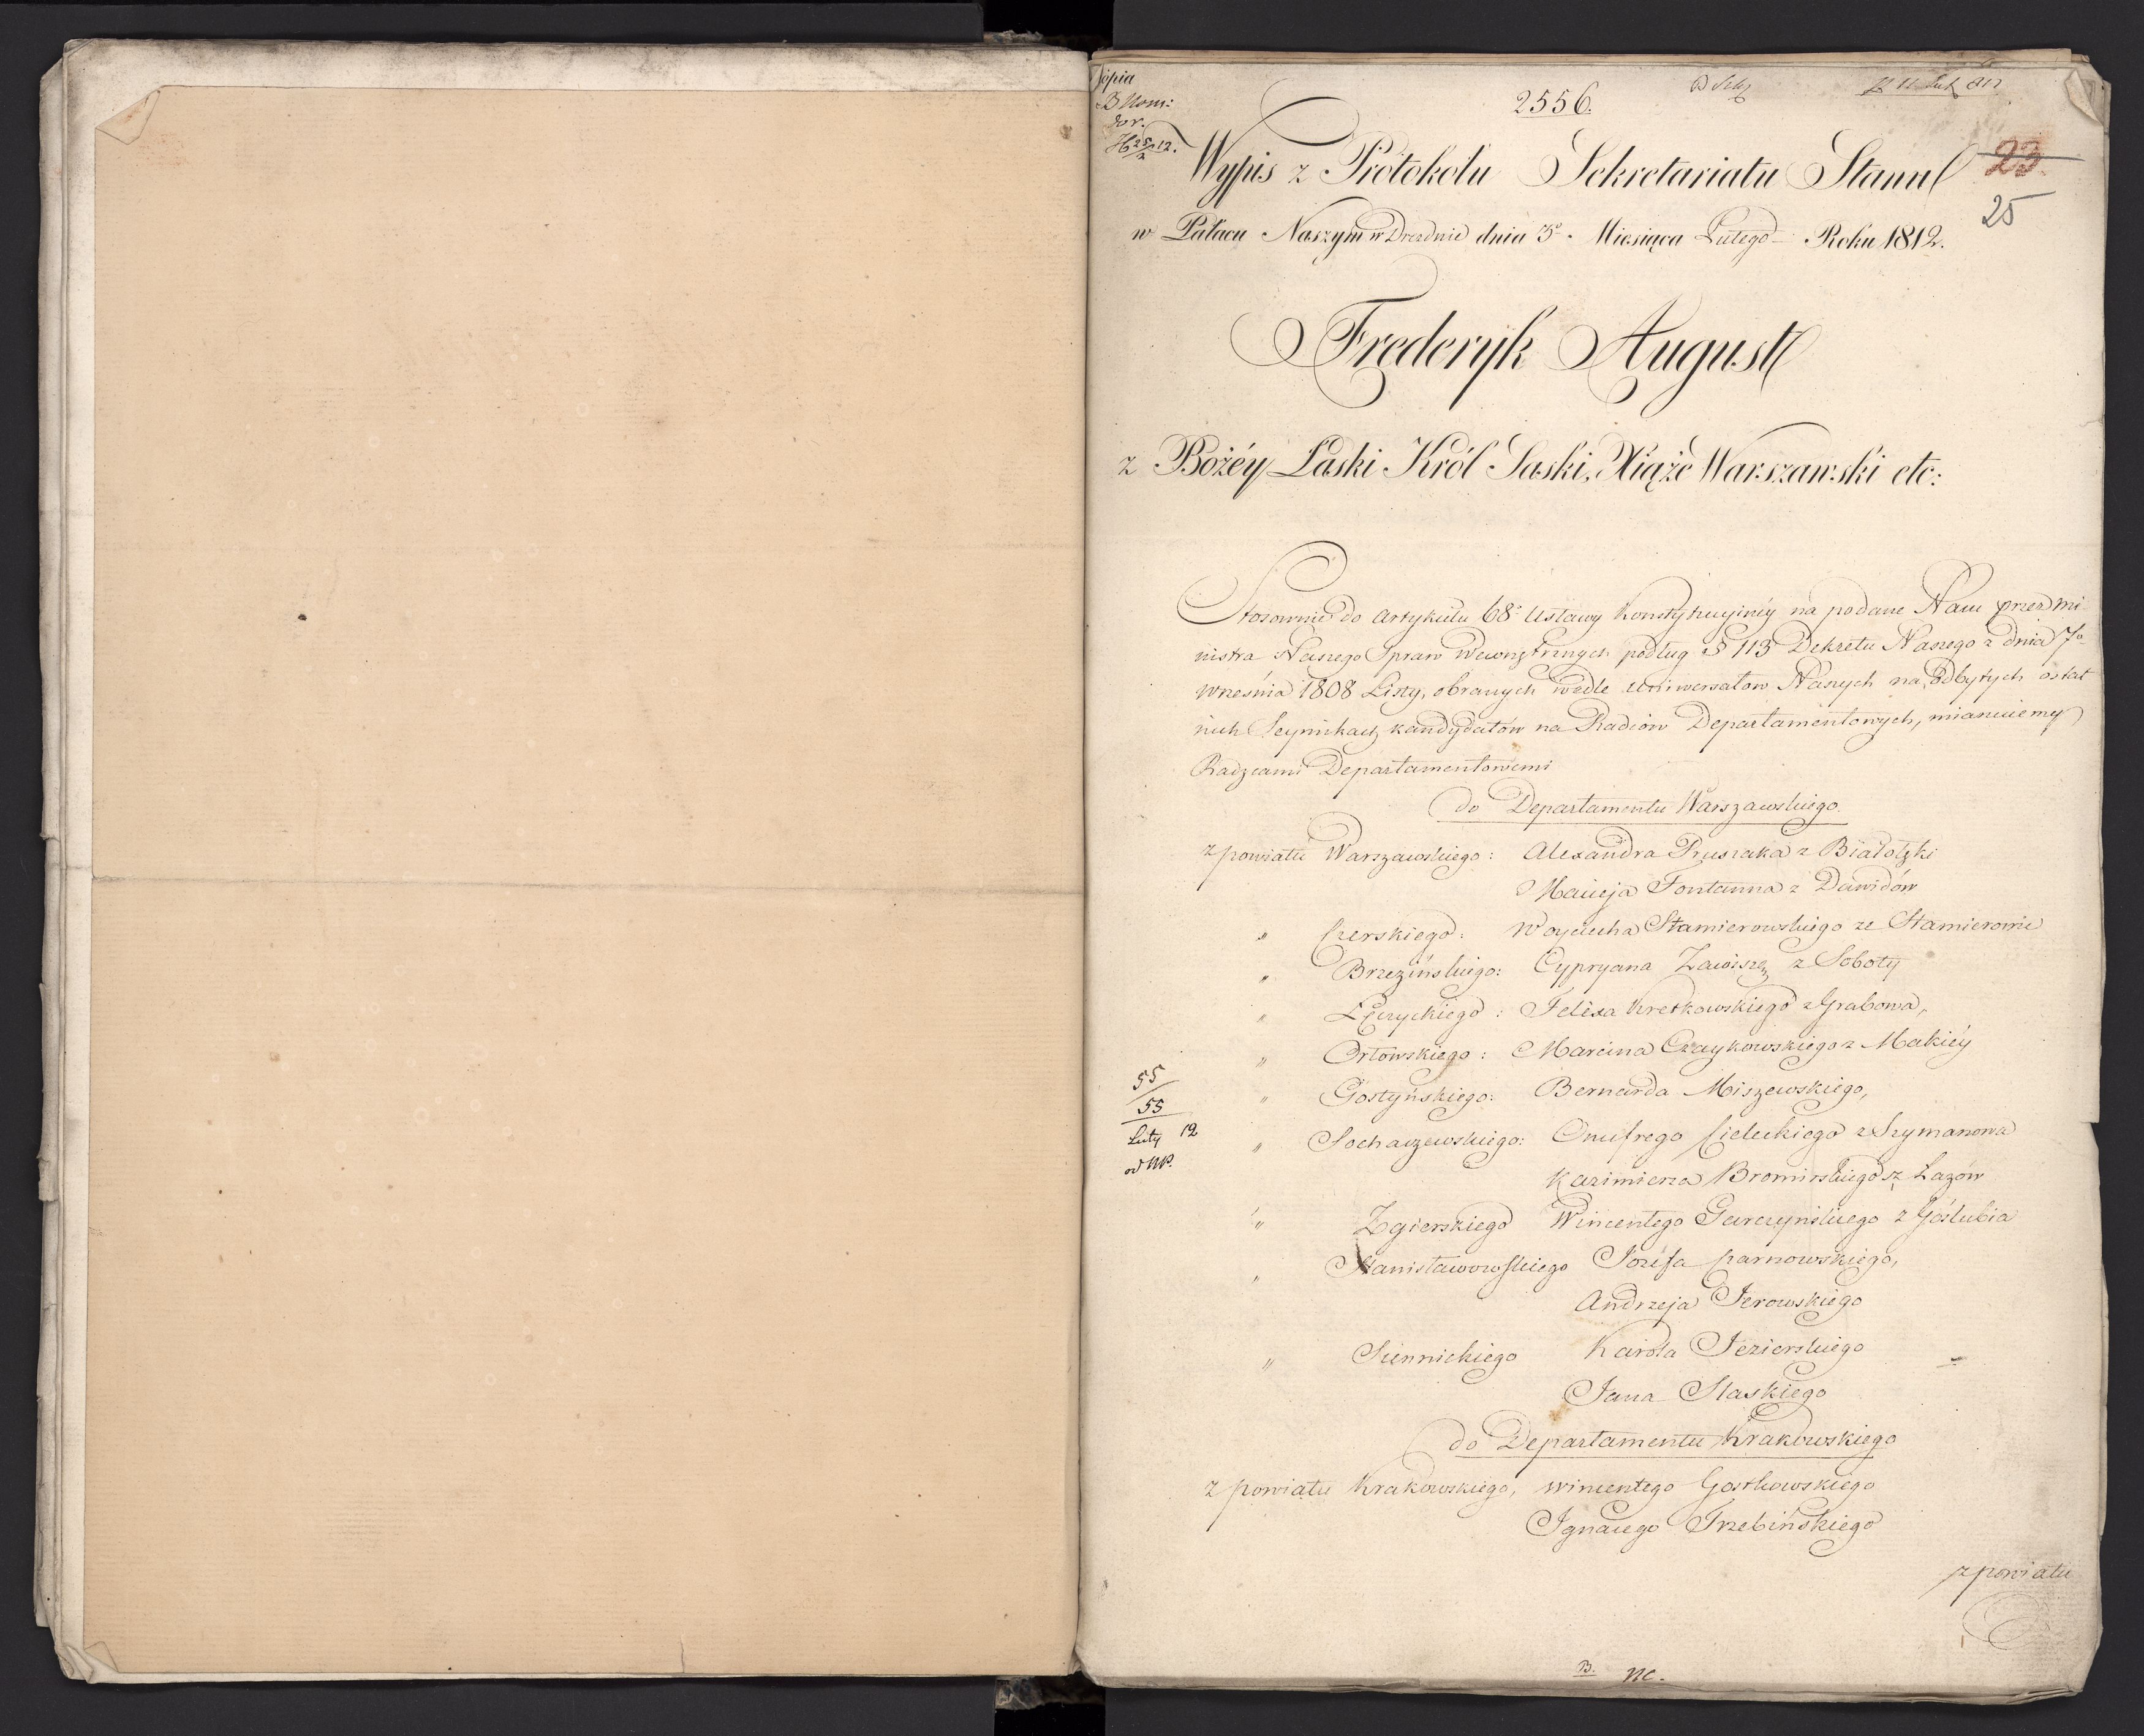 Kopia
B Nom:
2556.
23
25
Wypis z Protokołu Sekretariatu Stanu
w Pałacu Naszym w Dreznie dnia 5º Miesiąca Lutego Roku 1812.
Frederyk August
z Bożéy Łaski Król Saski, Xiąże Warszawski etc:
Stosownie do Artykułu 68º Ustawy Konstytucyinéy na podane Nam przez Mi-
nistra Naszego Spraw Wewnętrznych podług § 113 Dekretu Naszego z dnia 7º
Września 1808 Listy, obranych wedle Uniwersałow Naszych na odbytych ostat
nich Seymikach kandydatów na Radców Departamentowych, mianuiemy
Radzcami Departamentowemi
do Departamentu Warszawskiego
z powiatu Warszawskiego: Alexandra Prusaka z Białołęki
Macieja Fontanna z Dawidów
" Czerskiego: Woyciecha Stamierowskiego ze Stamierowic
" Brzezińskiego: Cypryana Zawiszę z Soboty
" Łęczyckiego: Felixa Kretkowskiego z Grabowa,
" Orłowskiego: Marcina Czaykowskiego z Makiéy
" Gostyńskiego: Bernarda Miszewskiego,
55
55
Luty 12
" Sochaczewskiego: Onufrego Cieleckiego z Szymanowa
Kazimierza Bromirskiego z Łazów
" Zgierskiego Wincentego Garczynskiego z Góslubia
" Stanisławowskiego Józéfa Czarnowskiego,
Andrzeja Jerowskiego
" Siennickiego Karola Jezierskiego
Jana Slaskiego
do Departamentu Krakowskiego
z powiatu Krakowskiego, Wincentego Gostkowskiego
Ignacego Trzebińskiego
z powiatu